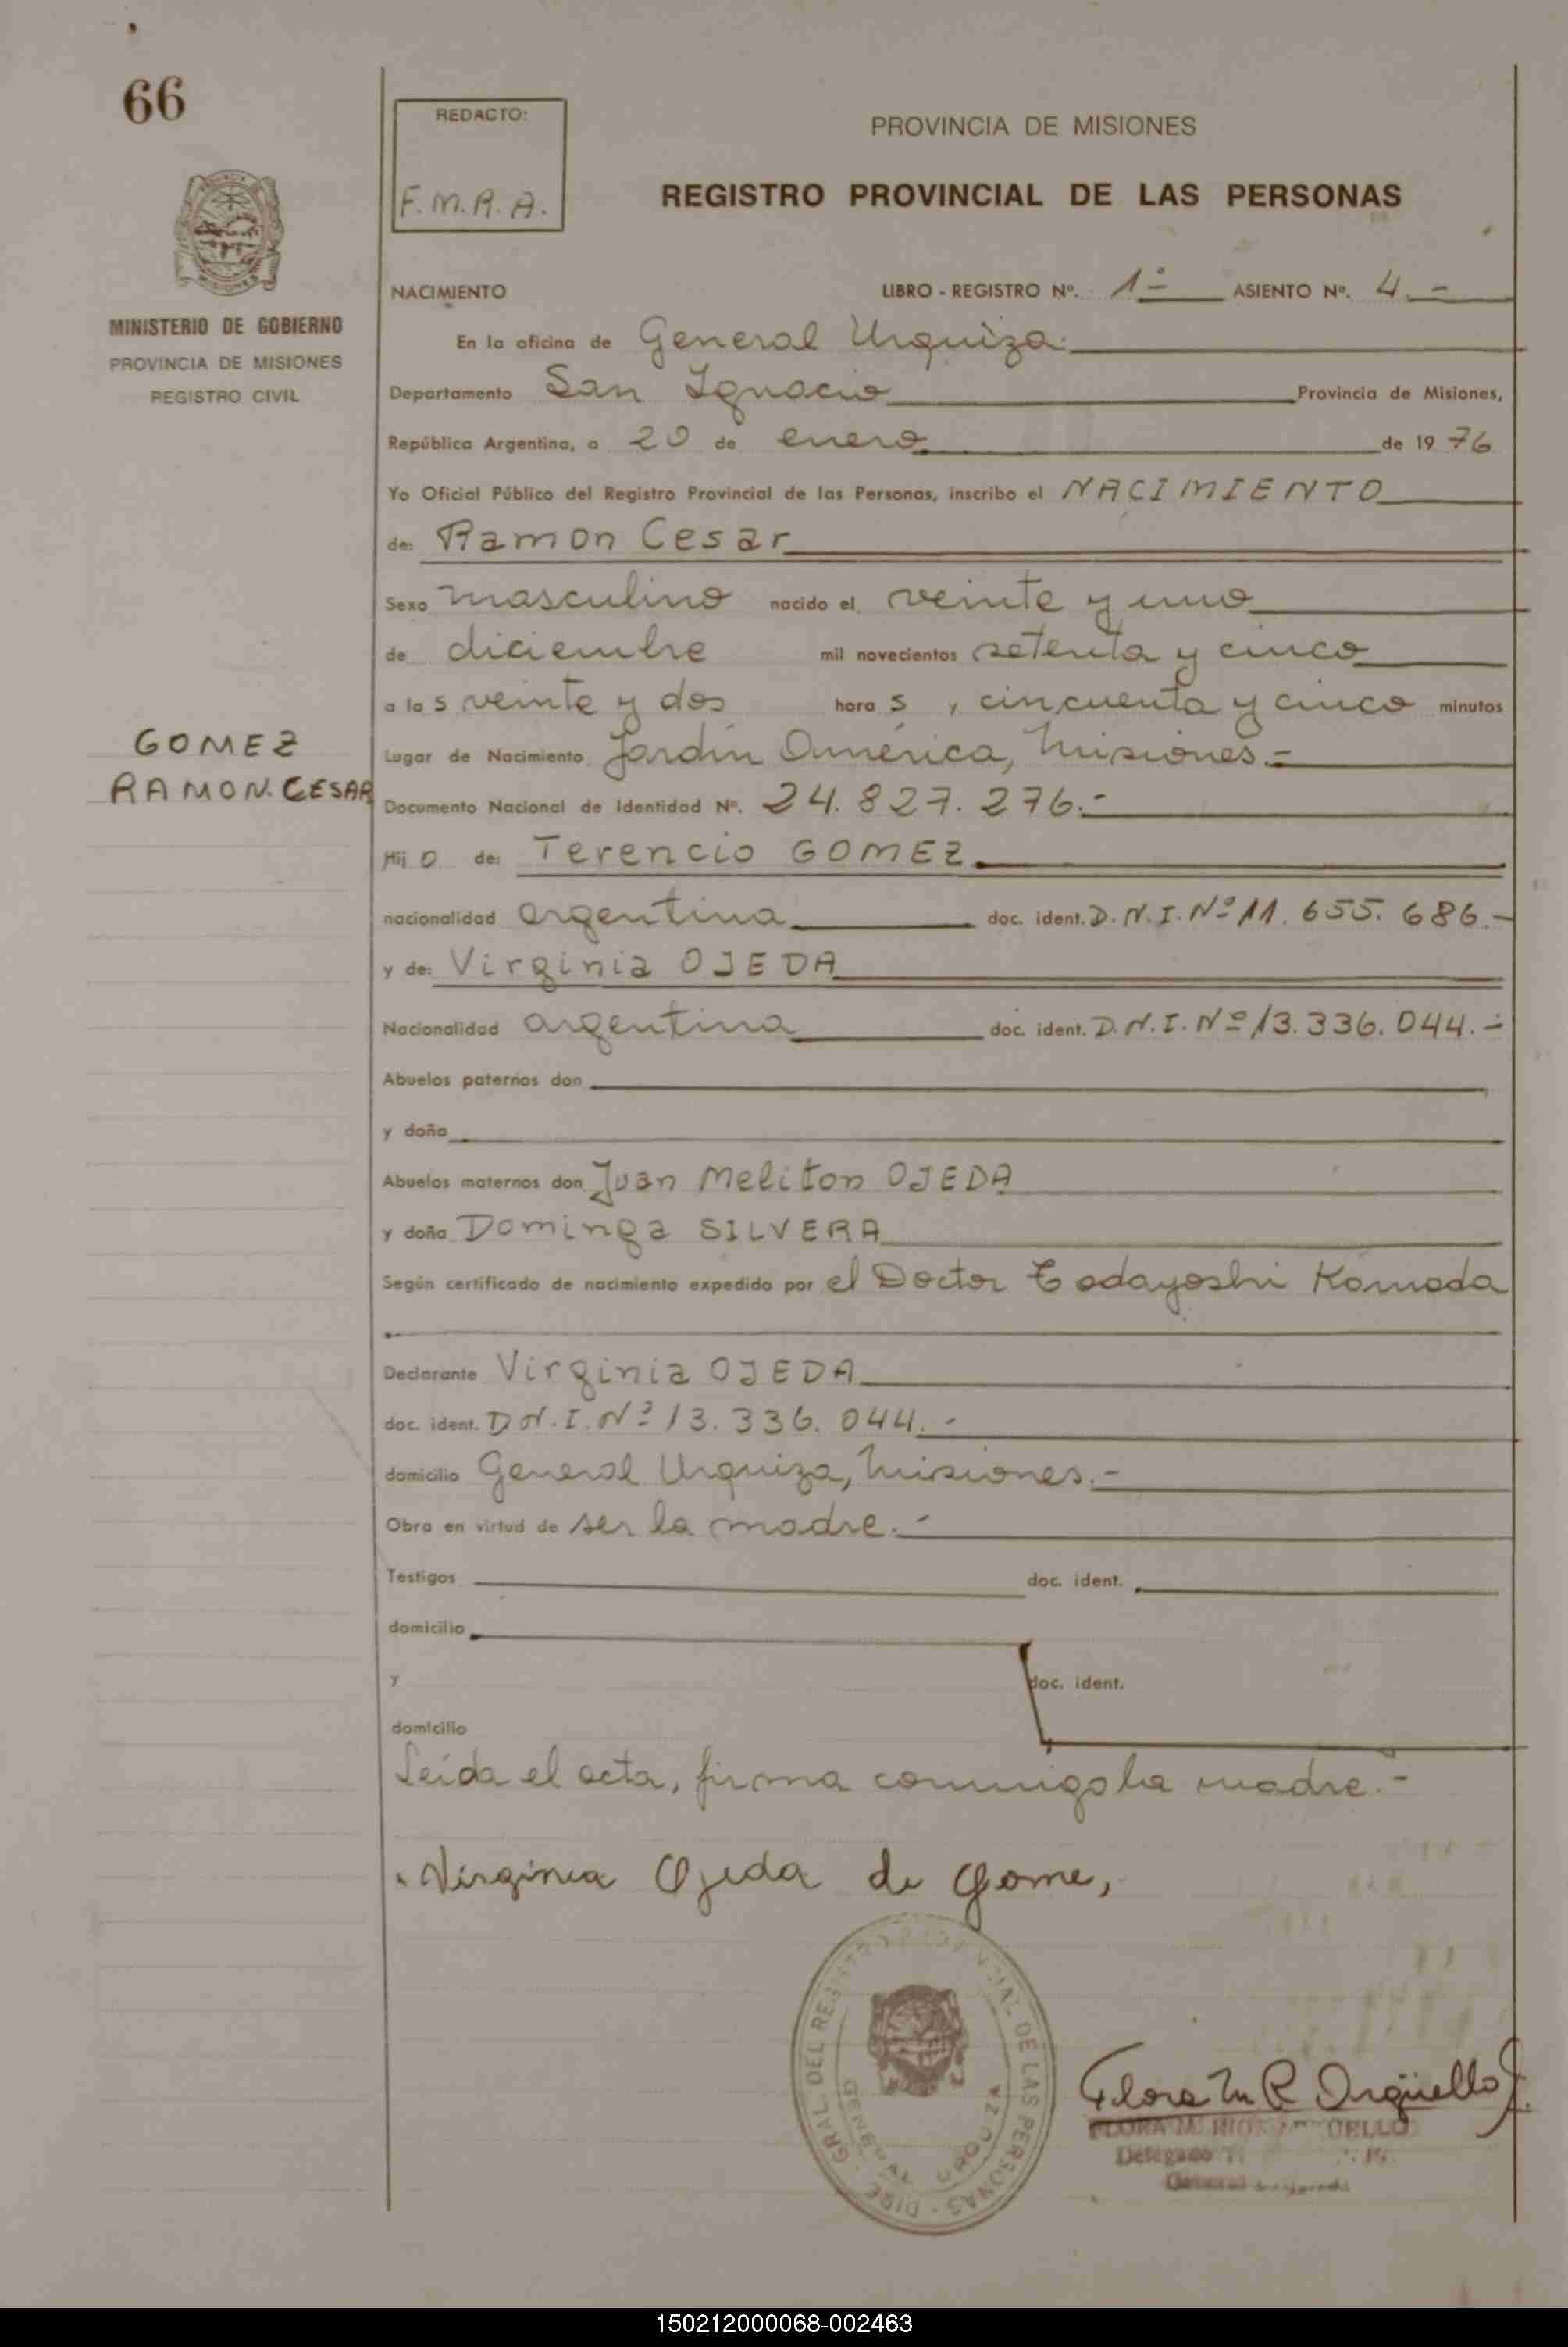 66
REDACTO:
F.M.R.A.
PROVINCIA DE MISIONES
REGISTRO PROVINCIAL DE LAS PERSONAS
MINISTERIO DE GOBIERNO
PROVINCIA DE MISIONES
REGISTRO CIVIL
NACIMIENTO LIBRO - REGISTRO Nº. 1º ASIENTO Nº. 4.-
En la oficina de General Urquiza.
Departamento San Ignacio Provincia de Misiones,
República Argentina, a 20 de enero de 19 76
Yo Oficial Público del Registro Provincial de las Personas, inscribo el NACIMIENTO
de: Ramon Cesar
Sexo masculino nacido el veinte y uno
de diciembre mil novecientos setenta y cinco
a las veinte y dos horas, cincuenta y cinco minutos
Lugar de Nacimiento Jardín América, Misiones.-
GOMEZ
RAMON. CESAR
Documento Nacional de Identidad Nº. 24.827.276.-
Hijo de: Terencio GOMEZ.
nacionalidad argentina doc. ident. D.N.I. Nº 11.655.686.-
y de: Virginia OJEDA
Nacionalidad argentina doc. ident. D.N.I. Nº 13.336.044.-
Abuelos paternos don
y doña
Abuelos maternos don Juan Meliton OJEDA
y doña Dominga SILVERA
Según certificado de nacimiento expedido por el Doctor Todayoshi Komoda
Declarante Virginia OJEDA
doc. ident. D.N.I. Nº 13.336.044.-
domicilio General Urquiza, Misiones.-
Obra en virtud de ser la madre.-
Testigos doc. ident.
domicilio
y doc. ident.
domicilio
Leída el acta, firma conmigo la madre.-
Virginia Ojeda de Gome,
DIRE. GRAL. DEL REGISTRO PROVINCIAL DE LAS PERSONAS
GENERAL URQUIZA
Flora M R Argüello
FLORA M. RIOS
Delegado
General
150212000068-002463